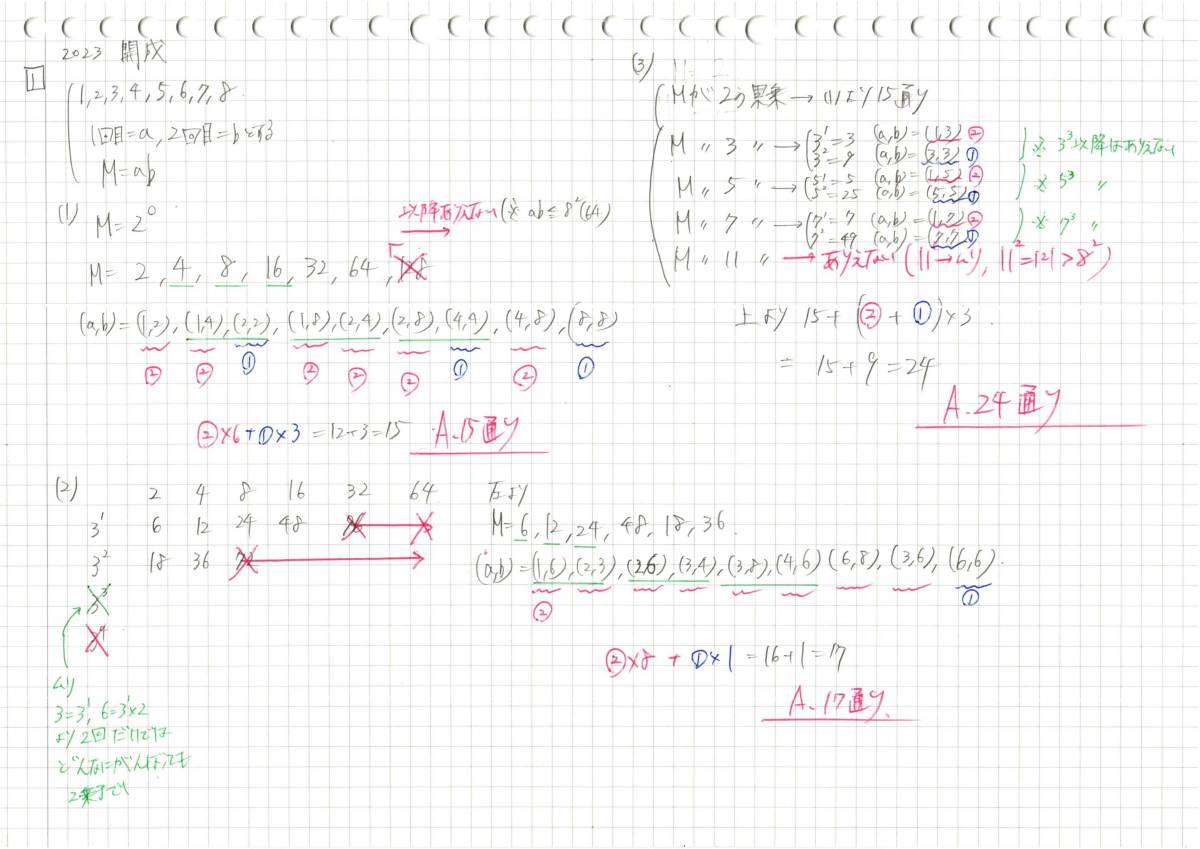 2023 開成
1
1,2,3,4,5,6,7,8.
1回目=a, 2回目=bとする
M=ab
(1) M=2⁰
以降ありえない(※ ab≦8²(64)
M= 2, 4, 8, 16, 32, 64, 128
(a,b)=(1,2),(1,4),(2,2),(1,8),(2,4),(2,8),(4,4),(4,8),(8,8)
② ② ① ② ② ② ① ② ①
②×6+①×3=12+3=15 A.15通り
(2) 2 4 8 16 32 64
3¹ 6 12 24 48 96 ×
3² 18 36 72
3³
3⁴
ムリ
3=3¹, 6=3¹×2
より2回だけでは
どんなにがんばっても
2乗まで
左より
M=6,12,24,48,18,36.
(a,b)=(1,6),(2,3),(2,6),(3,4),(3,8),(4,6)(6,8),(3,6),(6,6).
② ①
②×8+①×1=16+1=17
A.17通り
(3)
Mが2の累乗→(1)より15通り
M 〃 3 〃 → 3¹=3 (a,b)=(1,3)②
3²=9 (a,b)=(3,3)① ※ 3³以降はありえない
M 〃 5 〃 → 5¹=5 (a,b)=(1,5)②
5²=25 (a,b)=(5,5)① ※ 5³ 〃
M 〃 7 〃 → 7¹=7 (a,b)=(1,7)②
7²=49 (a,b)=(7,7)① ※ 7³ 〃
M 〃 11 〃 → ありえない(11→ムリ, 11²=121>8²)
上より 15+(②+①)×3.
= 15+9=24
A.24通り